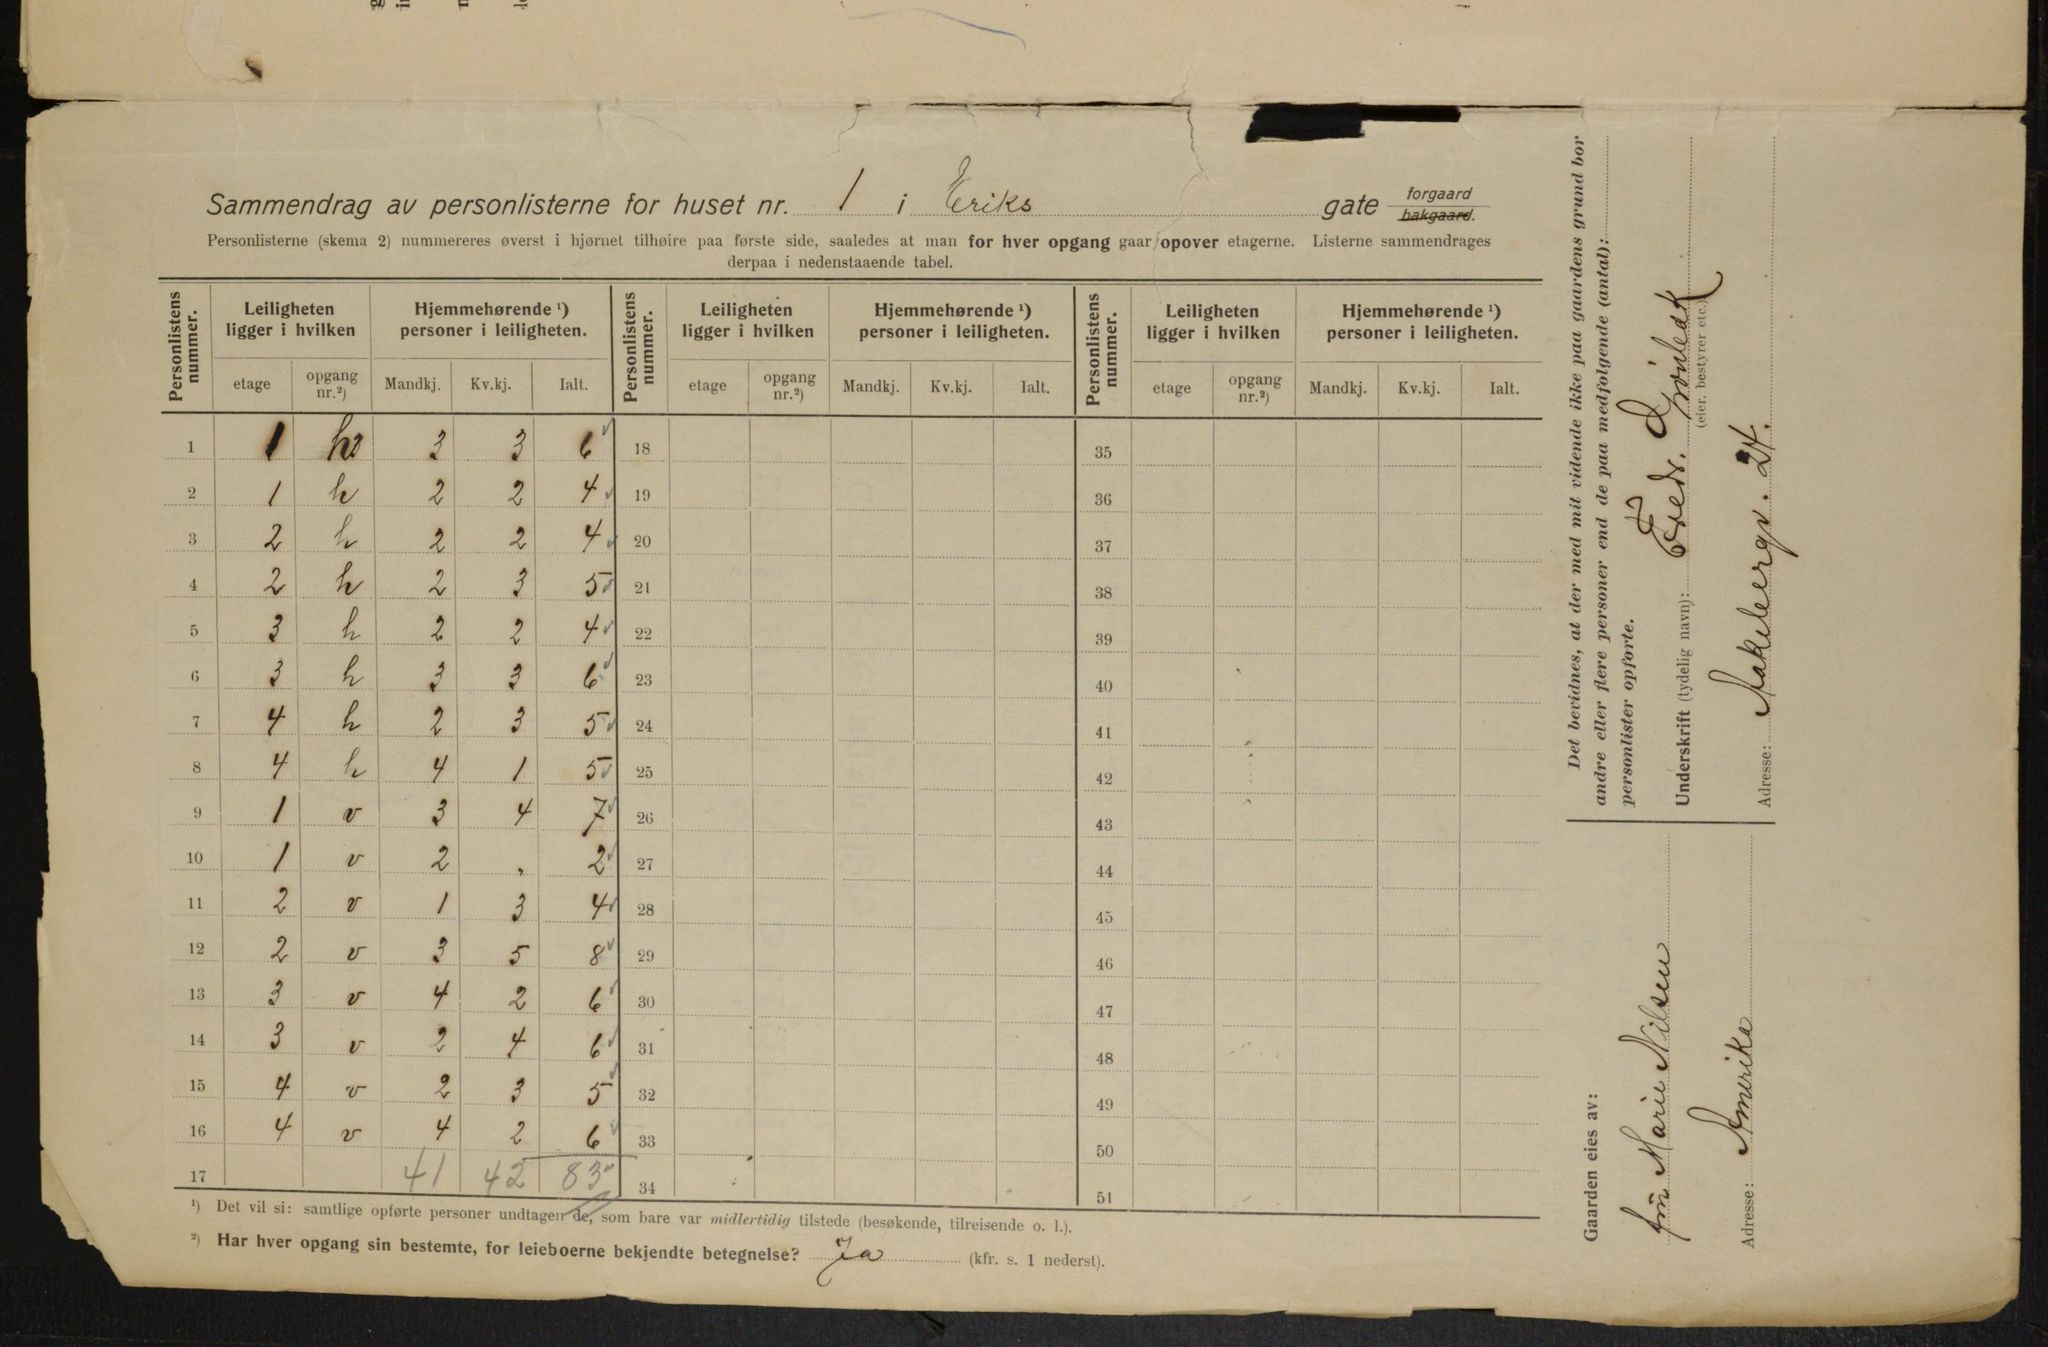 Sammendrag av personlisterne for huset nr. 1 i Eriks gate forgaard bakgaard.
Personlisterne (skema 2) nummereres øverst i hjørnet tilhøire paa første side, saaledes at man for hver opgang gaar opover etagerne. Listerne sammendrages
derpaa i nedenstaaende tabel.
Personlistens nummer. Leiligheten ligger i hvilken Hjemmehørende ¹) personer i leiligheten. Personlistens nummer. Leiligheten ligger i hvilken Hjemmehørende ¹) personer i leiligheten. Personlistens nummer. Leiligheten ligger i hvilken Hjemmehørende ¹) personer i leiligheten.
etage opgang nr.²) Mandkj. Kv.kj. Ialt. etage opgang nr.²) Mandkj. Kv.kj. Ialt. etage opgang nr.²) Mandkj. Kv.kj. Ialt.
1 1 h 3 3 6 18 35
2 1 h 2 2 4 19 36
3 2 h 2 2 4 20 37
4 2 h 2 3 5 21 38
5 3 h 2 2 4 22 39
6 3 h 3 3 6 23 40
7 4 h 2 3 5 24 41
8 4 h 4 1 5 25 42
9 1 v 3 4 7 26 43
10 1 v 2 „ 2 27 44
11 2 v 1 3 4 28 45
12 2 v 3 5 8 29 46
13 3 v 4 2 6 30 47
14 3 v 2 4 6 31 48
15 4 v 2 3 5 32 49
16 4 v 4 2 6 33 50
17 41 42 83 34 51
¹) Det vil si: samtlige opførte personer undtagen de, som bare var midlertidig tilstede (besøkende, tilreisende o. l.).
²) Har hver opgang sin bestemte, for leieboerne bekjendte betegnelse? Ja (kfr. s. 1 nederst).
Det bevidnes, at der med mit vidende ikke paa gaardens grund bor
andre eller flere personer end de paa medfølgende (antal):
personlister opførte.
Underskrift (tydelig navn): Fredr.
(eier, bestyrer etc.)
Adresse: Aakebergv. 24.
Gaarden eies av:
Marie Nilsen
Adresse: Amerika